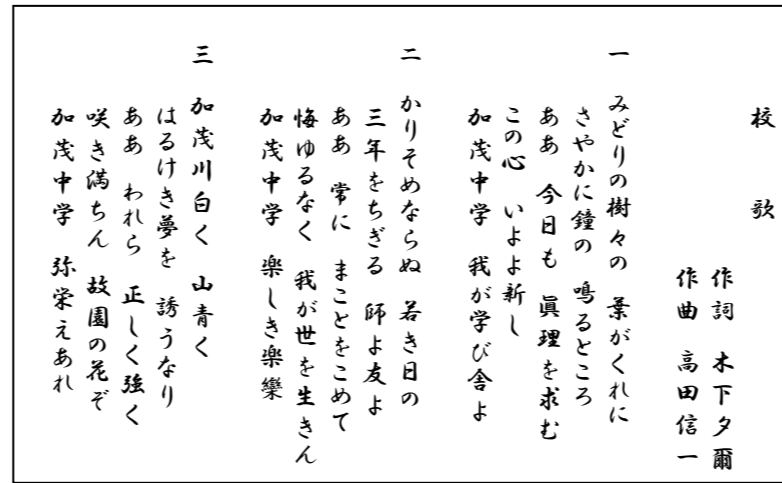 校 歌
作詞 木下夕爾
作曲 高田信一
一 みどりの樹々の 葉がくれに
さやかに鐘の 鳴るところ
ああ 今日も 眞理を求む
この心 いよよ新し
加茂中学 我が学び舎よ
二 かりそめならぬ 若き日の
三年をちぎる 師よ友よ
ああ 常に まことをこめて
悔ゆるなく 我が世を生きん
加茂中学 楽しき楽欒
三 加茂川白く 山青く
はるけき夢を 誘うなり
ああ われら 正しく強く
咲き満ちん 故園の花ぞ
加茂中学 弥栄えあれ